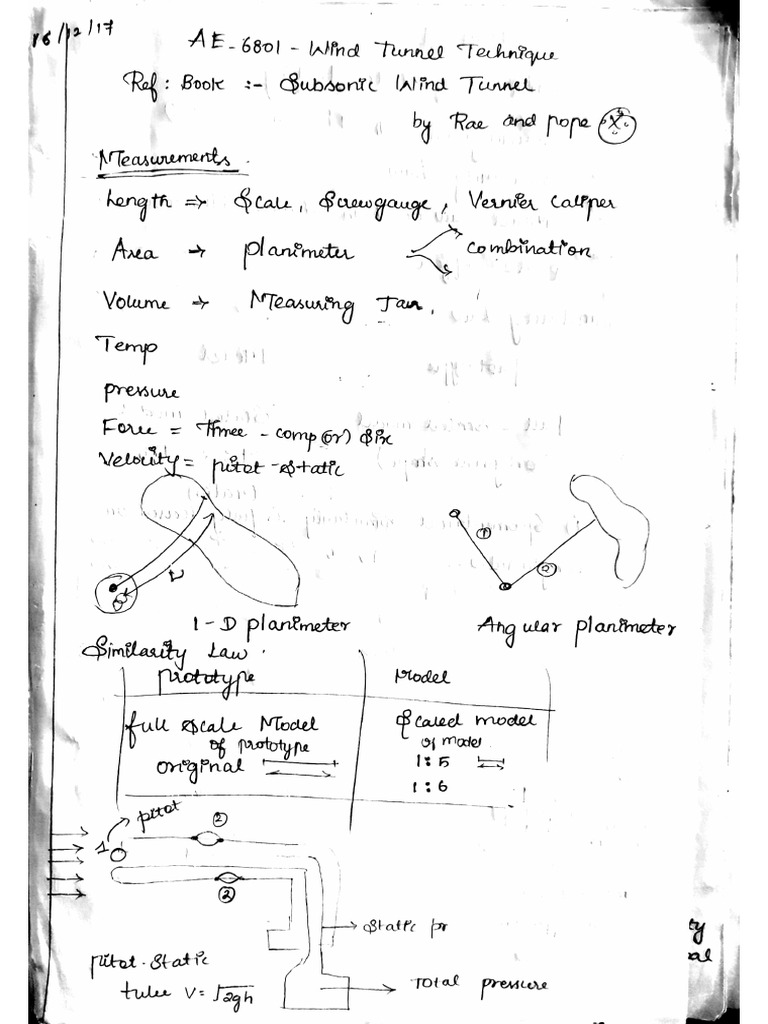 16/12/17
AE-6801 - Wind Tunnel Technique
Ref: Book :- Subsonic Wind Tunnel
by Rae and pope
Measurements.
Length ⇒ Scale, Screwgauge, Vernier Caliper
Area → planimeter combination
Volume → Measuring Jar.
Temp
pressure
Force = three - comp (or) Six
Velocity = pitot - static
① ②
L
1-D planimeter Angular planimeter
Similarity Law.
prototype Model
full scale Model Scaled model
of prototype of model
original 1:5
1:6
pitot ②
1
②
static pr
pitot-static
tube V=√2gh Total pressure